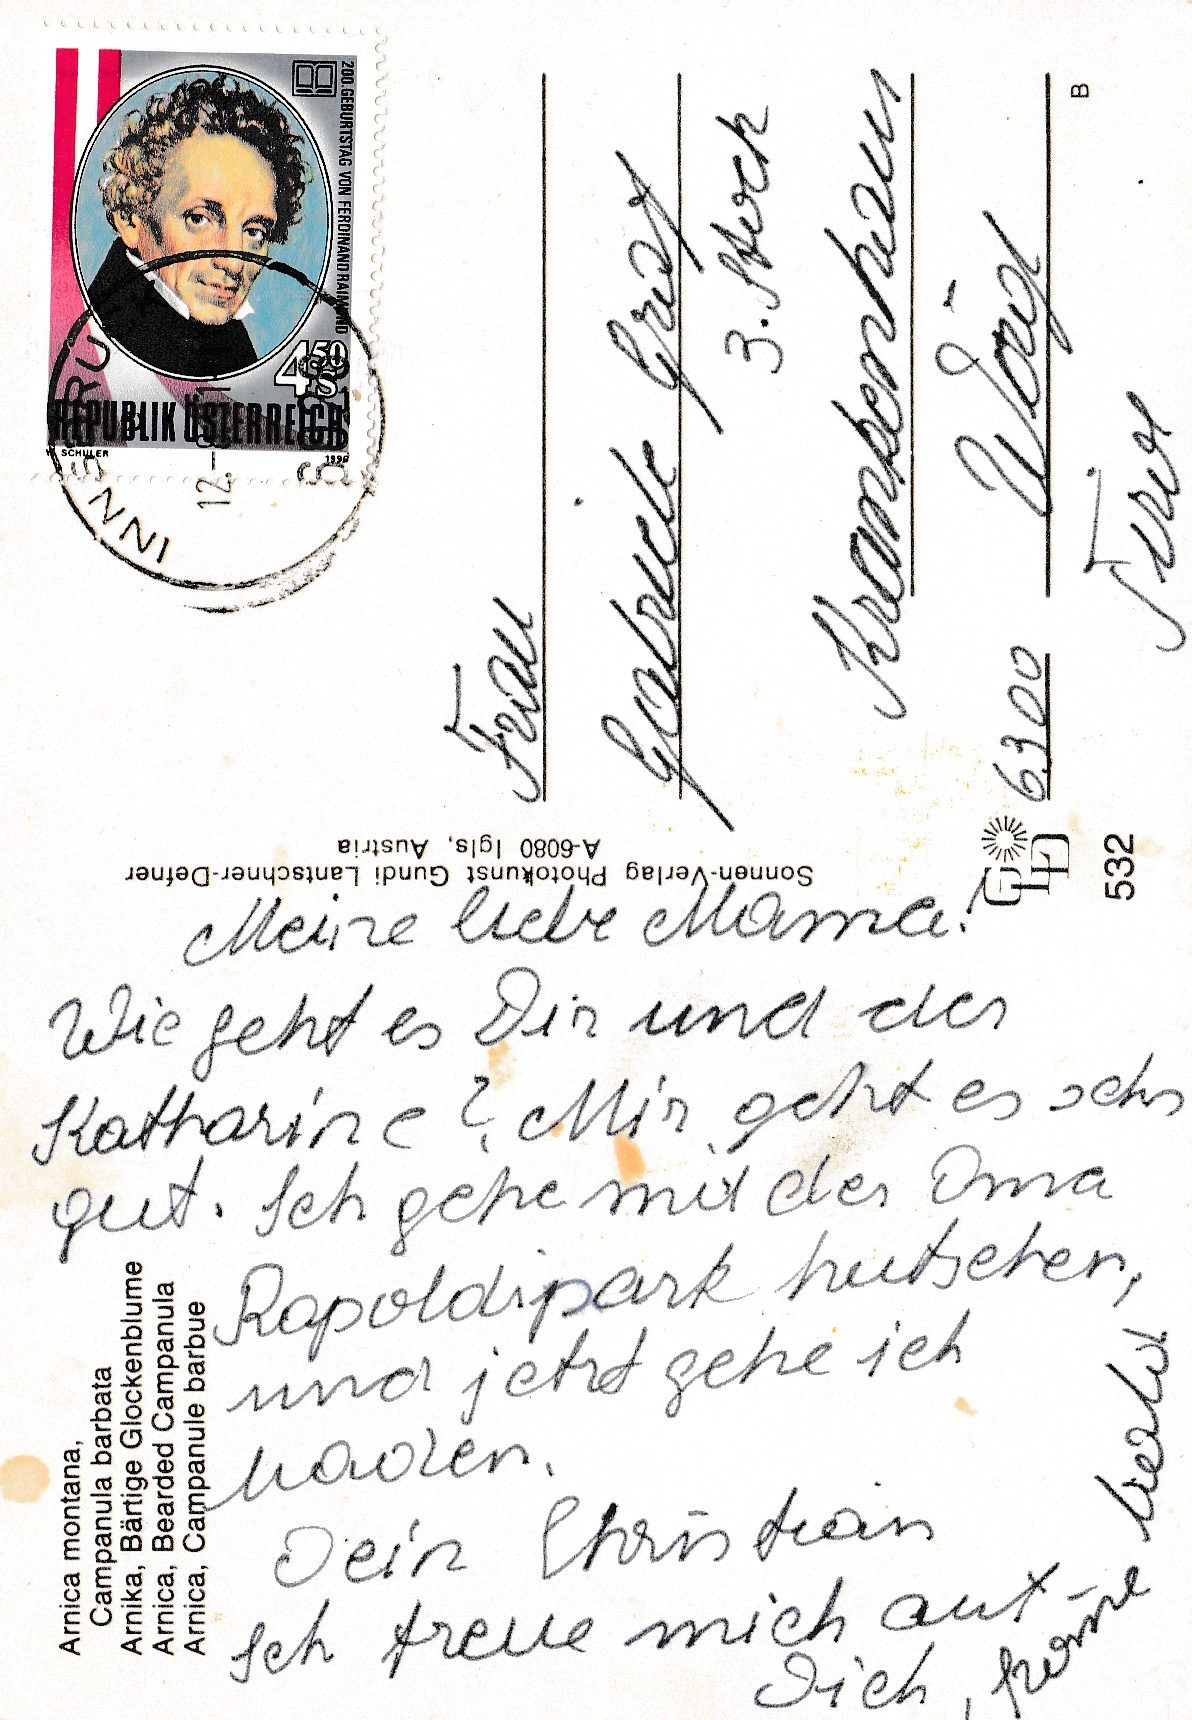 200. GEBURTSTAG VON FERDINAND RAIMUND
4.50
S
REPUBLIK ÖSTERREICH
SCHULER
1990
INNSBRUCK
12.
Frau
Gabriele
3. Stock
Krankenhaus
6300 Wörgl
Tirol
B
532
Sonnen-Verlag Photokunst Gundi Lantschner-Defner
A-6080 Igls, Austria
Meine liebe Mama!
Wie geht es Dir und der
Katharine? Mir geht es sehr
gut. Ich gehe mit der Oma
Rapoldipark hutschen,
und jetzt gehe ich
baden.
Dein Christian
Ich freue mich auf
Dich, komme bald
Arnica montana,
Campanula barbata
Arnika, Bärtige Glockenblume
Arnica, Bearded Campanula
Arnica, Campanule barbue